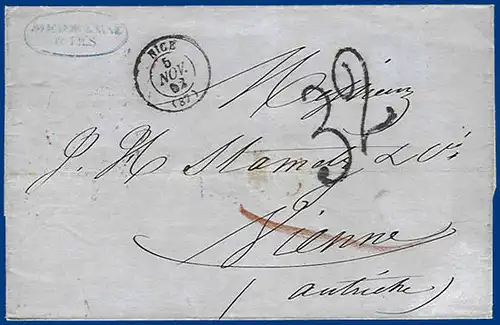 & FILS
NICE
5
NOV.
62
(87)
32
Messieurs
J. H. Stametz & Cie
Vienne
(autriche)